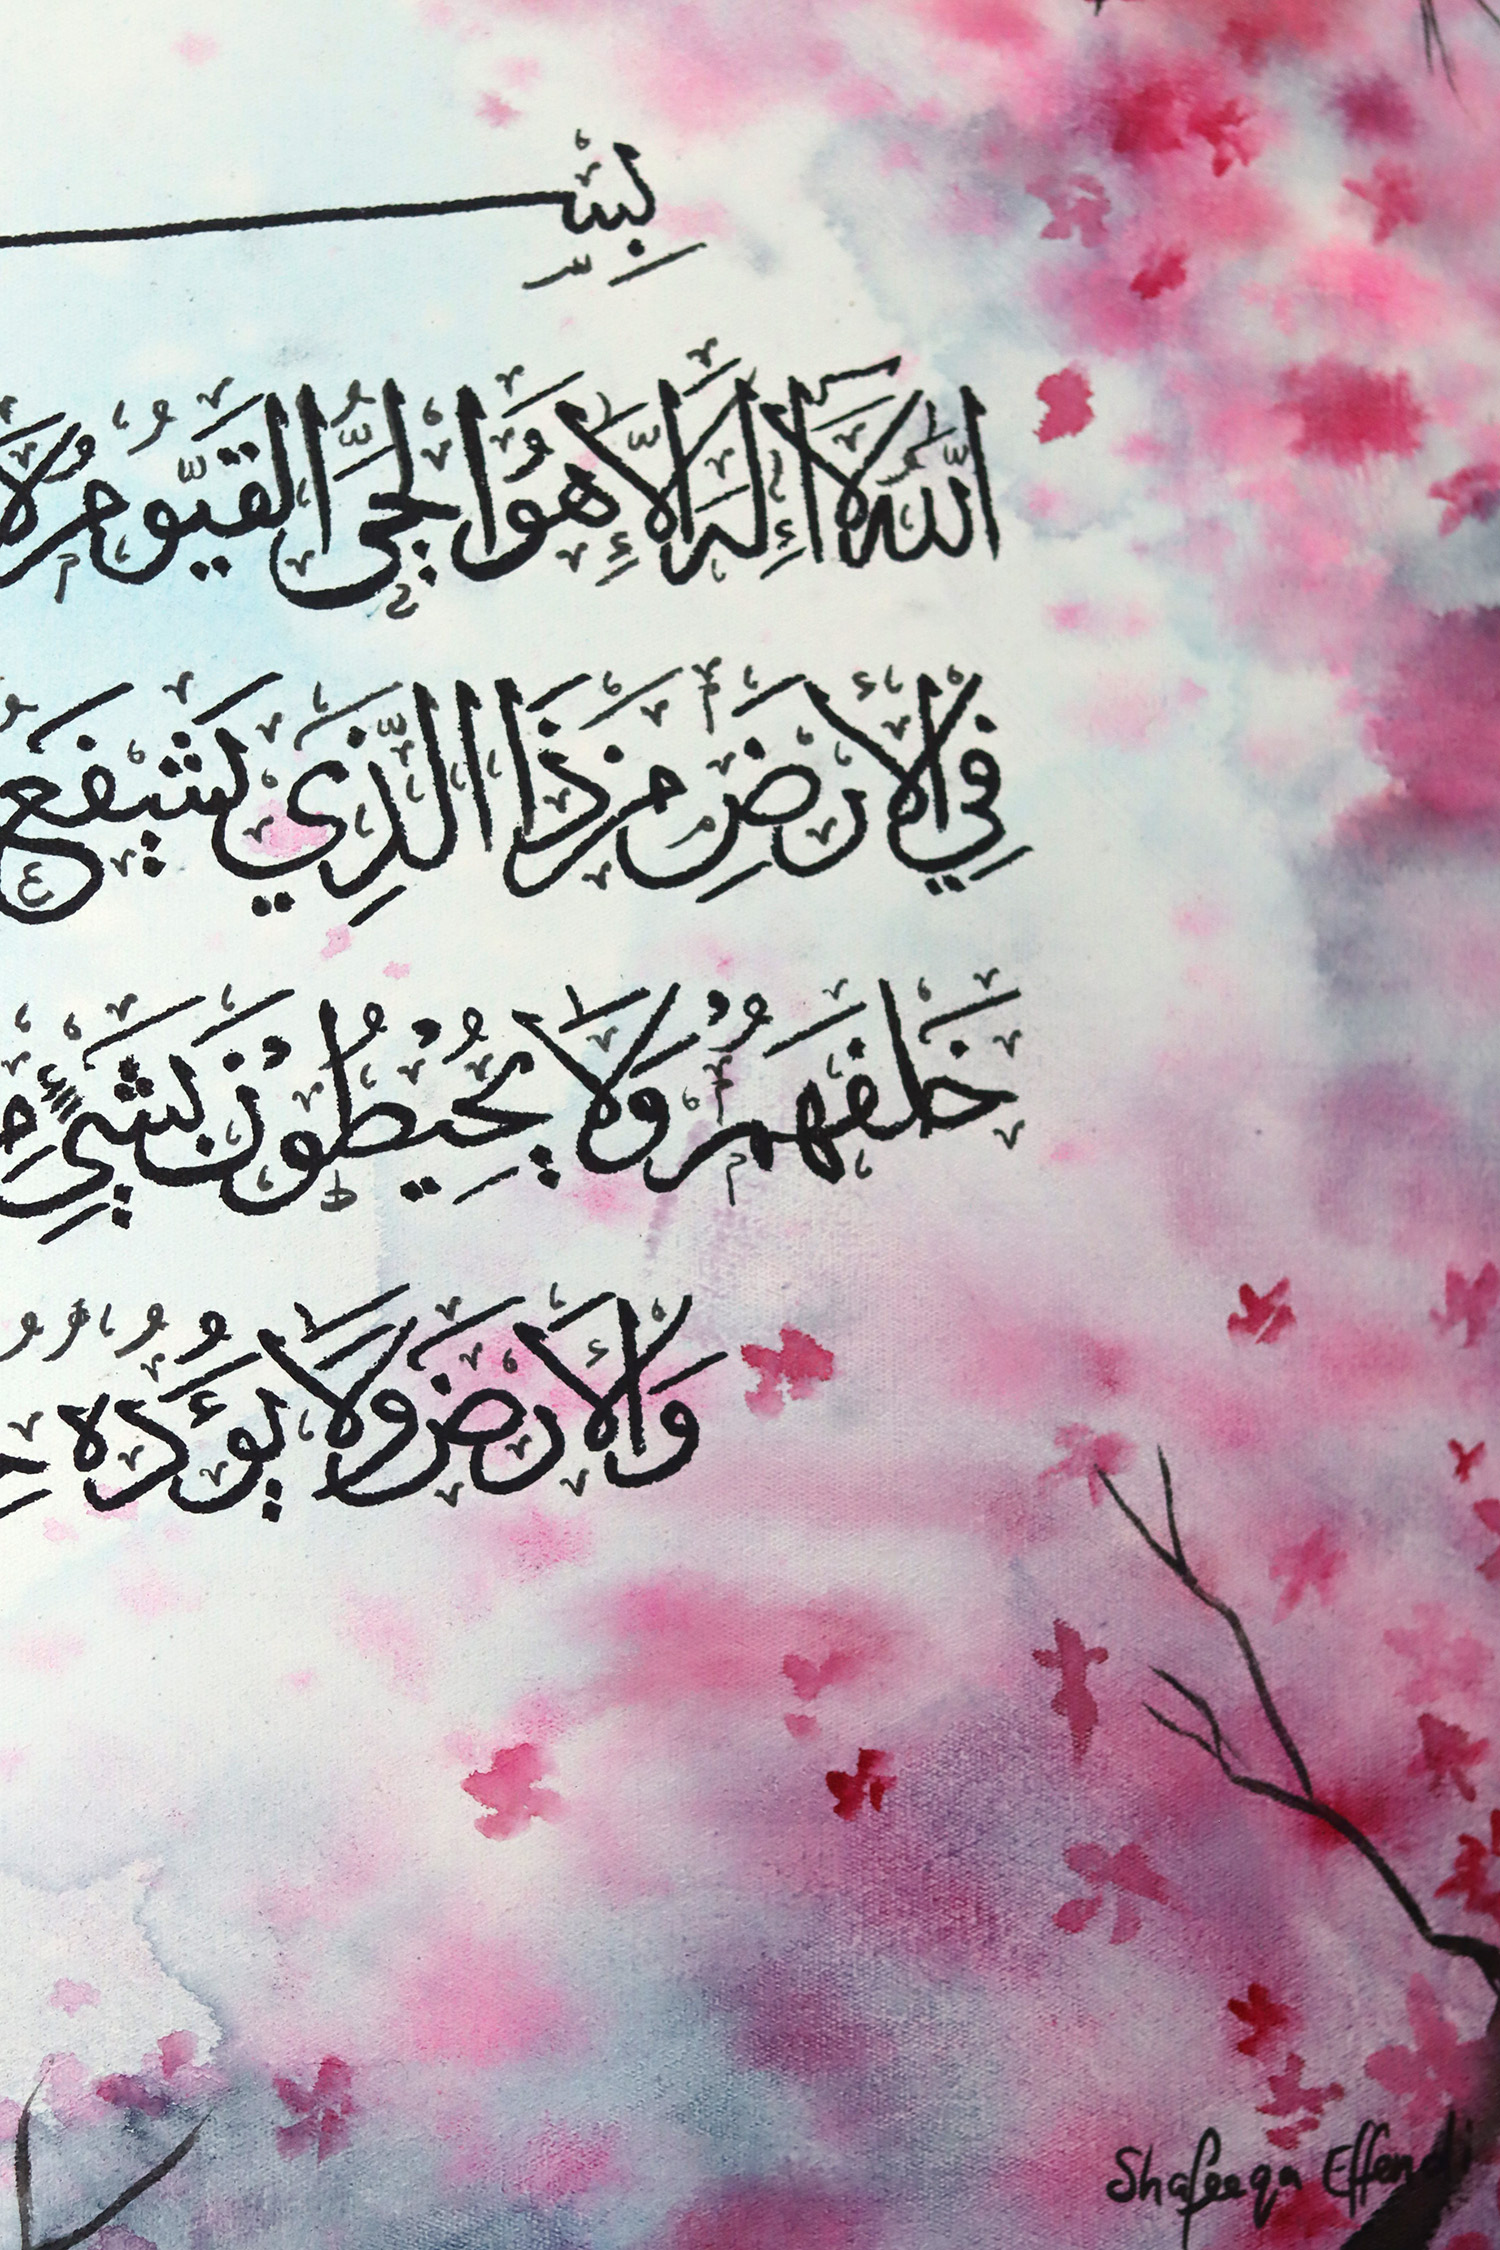 بِسْ
اللَّهُ لَا إِلَٰهَ إِلَّا هُوَ الْحَيُّ الْقَيُّومُ لَا
فِي الْأَرْضِ مَنْ ذَا الَّذِي يَشْفَعُ
خَلْفَهُمْ وَلَا يُحِيطُونَ بِشَيْءٍ
وَالْأَرْضَ وَلَا يَؤُدُهُ
Shafeeqa Effendi